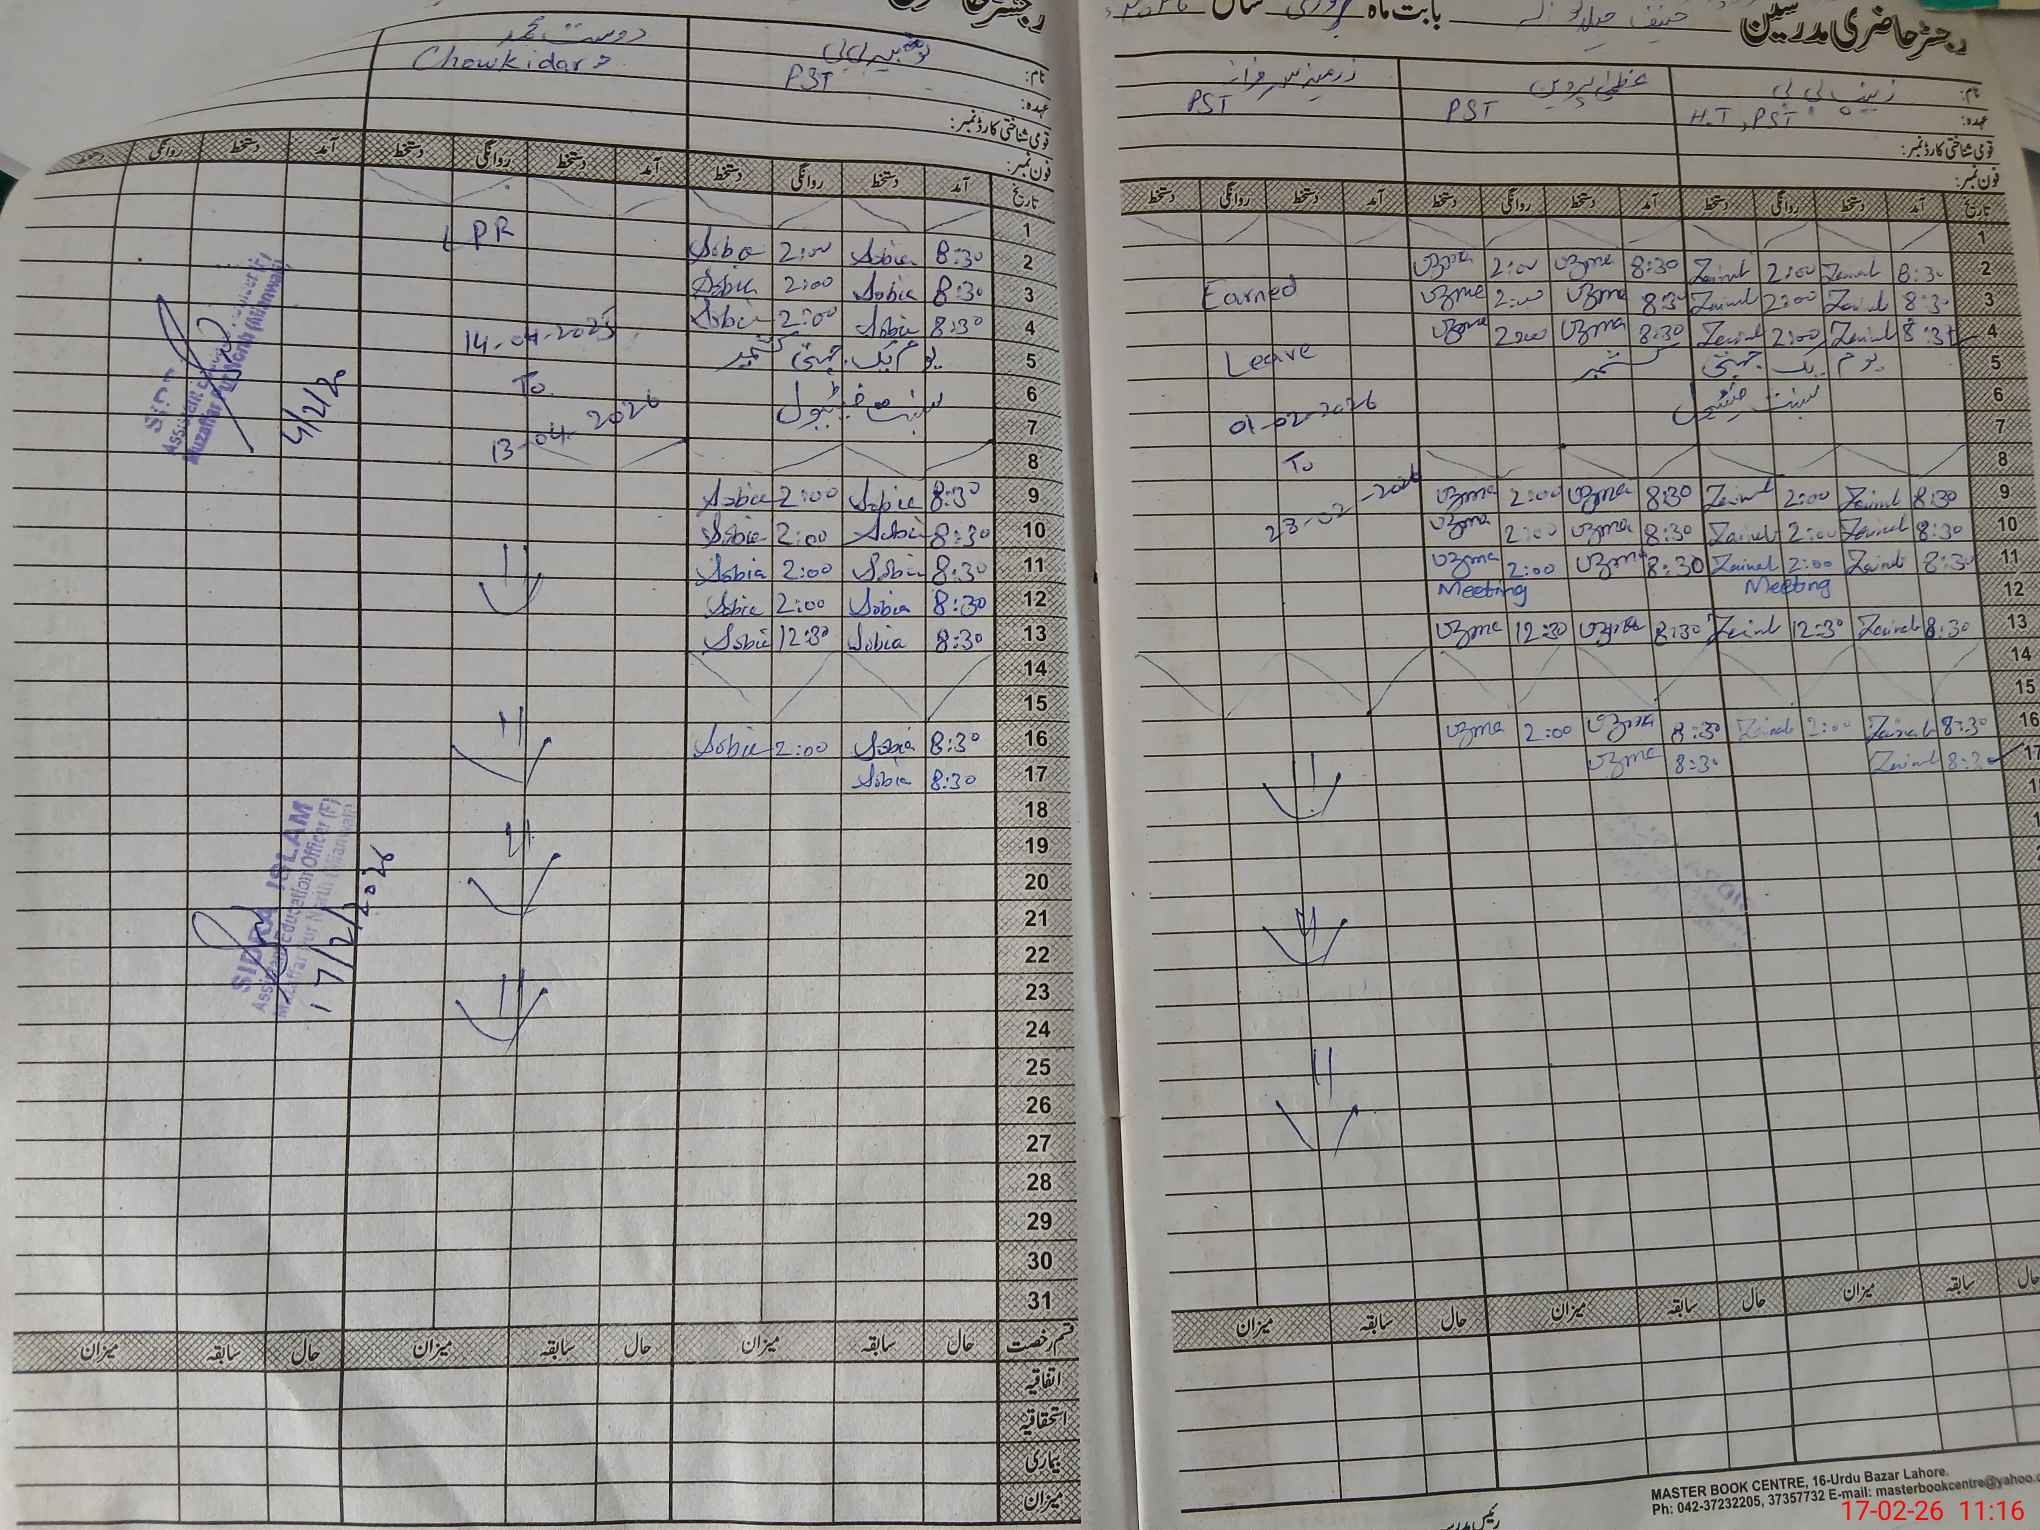 رجسٹر حاضری مدرسین بابت ماہ فروری سال
نام: زینب بی بی عظمیٰ پروین
عہدہ: H.T, PST PST PST
قومی شناختی کارڈ نمبر:
فون نمبر:
تاریخ آمد دستخط روانگی دستخط آمد دستخط روانگی دستخط آمد دستخط روانگی دستخط
1
2 8:30 Zainab 2:00 Zainab 8:30 Uzma 2:00 Uzma
3 8:30 Zainab 2:00 Zainab 8:30 Uzma 2:00 Uzma Earned
4 8:30 Zainab 2:00 Zainab 8:30 Uzma 2:00 Uzma
5 یوم یک جہتی کشمیر Leave
6 بسنت فیسٹیول
7 01-02-2026
8 To
9 8:30 Zainab 2:00 Zainab 8:30 Uzma 2:00 Uzma
23-02-2026
10 8:30 Zainab 2:00 Zainab 8:30 Uzma 2:00 Uzma
11 8:30 Zainab 2:00 Zainab 8:30 Uzma 2:00 Uzma
12 Meeting Meeting
13 8:30 Zainab 12:30 Zainab 8:30 Uzma 12:30 Uzma
14
15
16 8:30 Zainab 2:00 Zainab 8:30 Uzma 2:00 Uzma
17 8:30 Zainab 8:30 Uzma
حال سابقہ میزان حال سابقہ میزان حال سابقہ میزان
MASTER BOOK CENTRE, 16-Urdu Bazar Lahore.
Ph: 042-37232205, 37357732 E-mail: masterbookcentre@yahoo.c
17-02-26 11:16
نام: دوست محمد
عہدہ: PST Chowkidar
قومی شناختی کارڈ نمبر:
فون نمبر:
تاریخ آمد دستخط روانگی دستخط آمد دستخط روانگی دستخط آمد دستخط روانگی دستخط
1
LPR
2 8:30 Sobia 2:00 Sobia
3 8:30 Sobia 2:00 Sobia
4 8:30 Sobia 2:00 Sobia 14-04-2025
5 یوم یک جہتی کشمیر
To
6 بسنت فیسٹیول
7 13-04-2026
8
4/2/26
9 8:30 Sobia 2:00 Sobia
10 8:30 Sobia 2:00 Sobia
11 8:30 Sobia 2:00 Sobia
12 8:30 Sobia 2:00 Sobia
13 8:30 Sobia 12:30 Sobia
14
15
16 8:30 Sobia 2:00 Sobia
17 8:30 Sobia
18
19
20
21
22
23
24
25
26
27
28
29
30
31
SIDRA ISLAM
Assistant Education Officer (F)
Muzaffar Pur North (Mianwali)
17/2/2026
قسم رخصت حال سابقہ میزان حال سابقہ میزان حال سابقہ میزان
اتفاقیہ
استحقاقیہ
بیماری
میزان